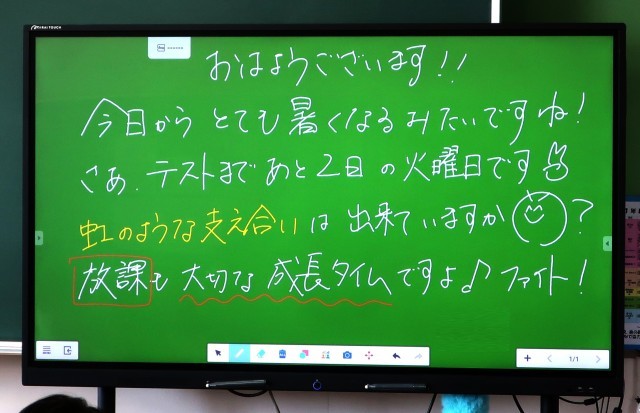 おはようございます!!
今日から とても 暑くなるみたいですね!
さあ、テストまで あと2日 の 火曜日です
虹のような支え合い は 出来ていますか ?
放課も 大切な 成長タイムですよ♪ ファイト!
1/1